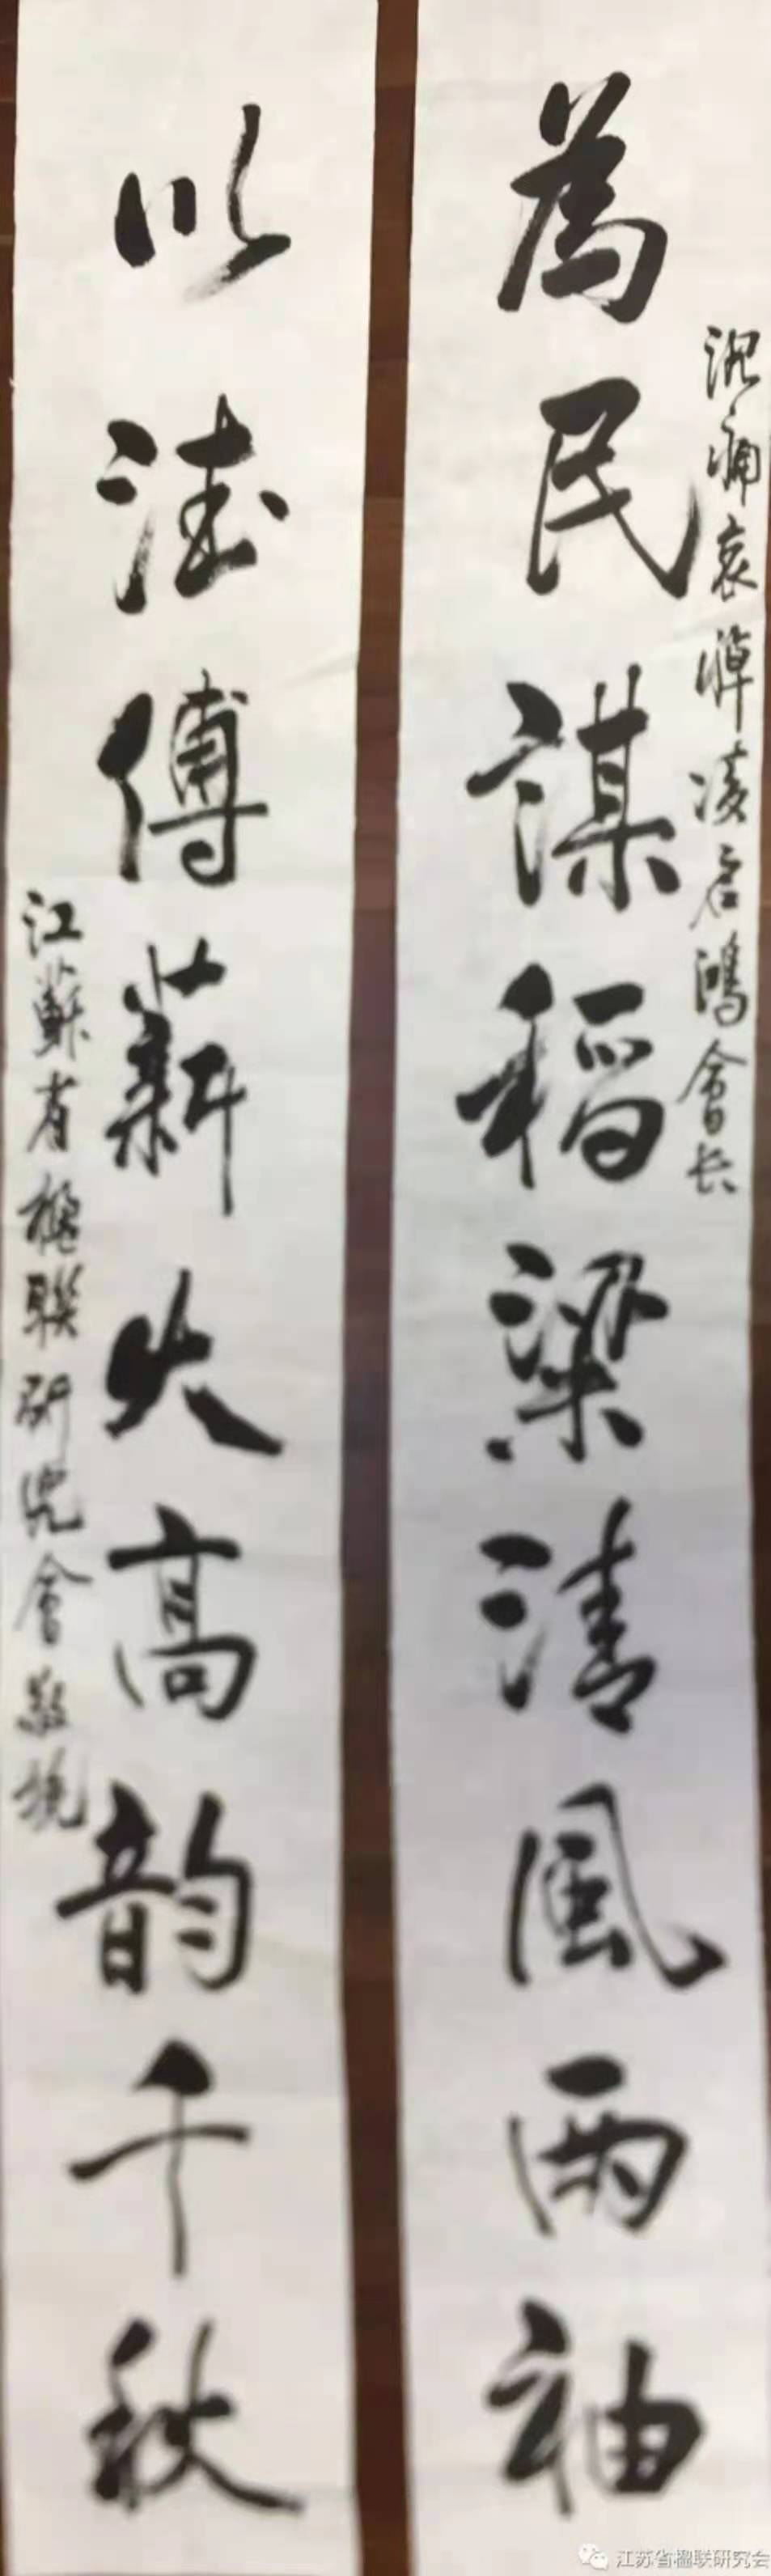 沉痛哀悼凌启鴻會长
為民謀稻粱清風兩袖
以法傳薪火高韵千秋
江蘇省楹聯研究會敬挽
江苏省楹联研究会